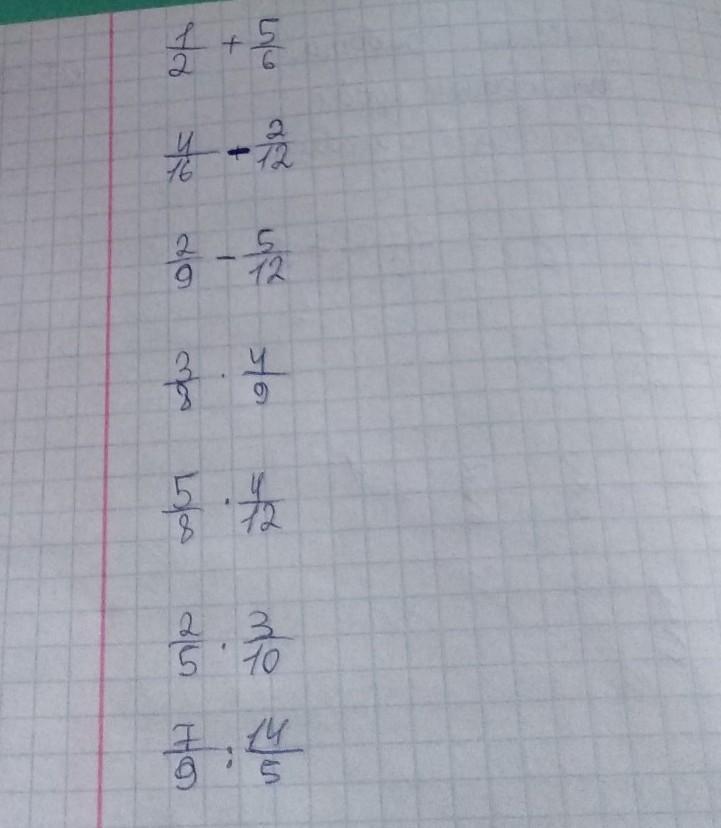 1/2 + 5/6
4/16 - 2/12
2/9 - 5/12
3/8 · 4/9
5/8 · 4/12
2/5 · 3/10
7/9 : 14/5